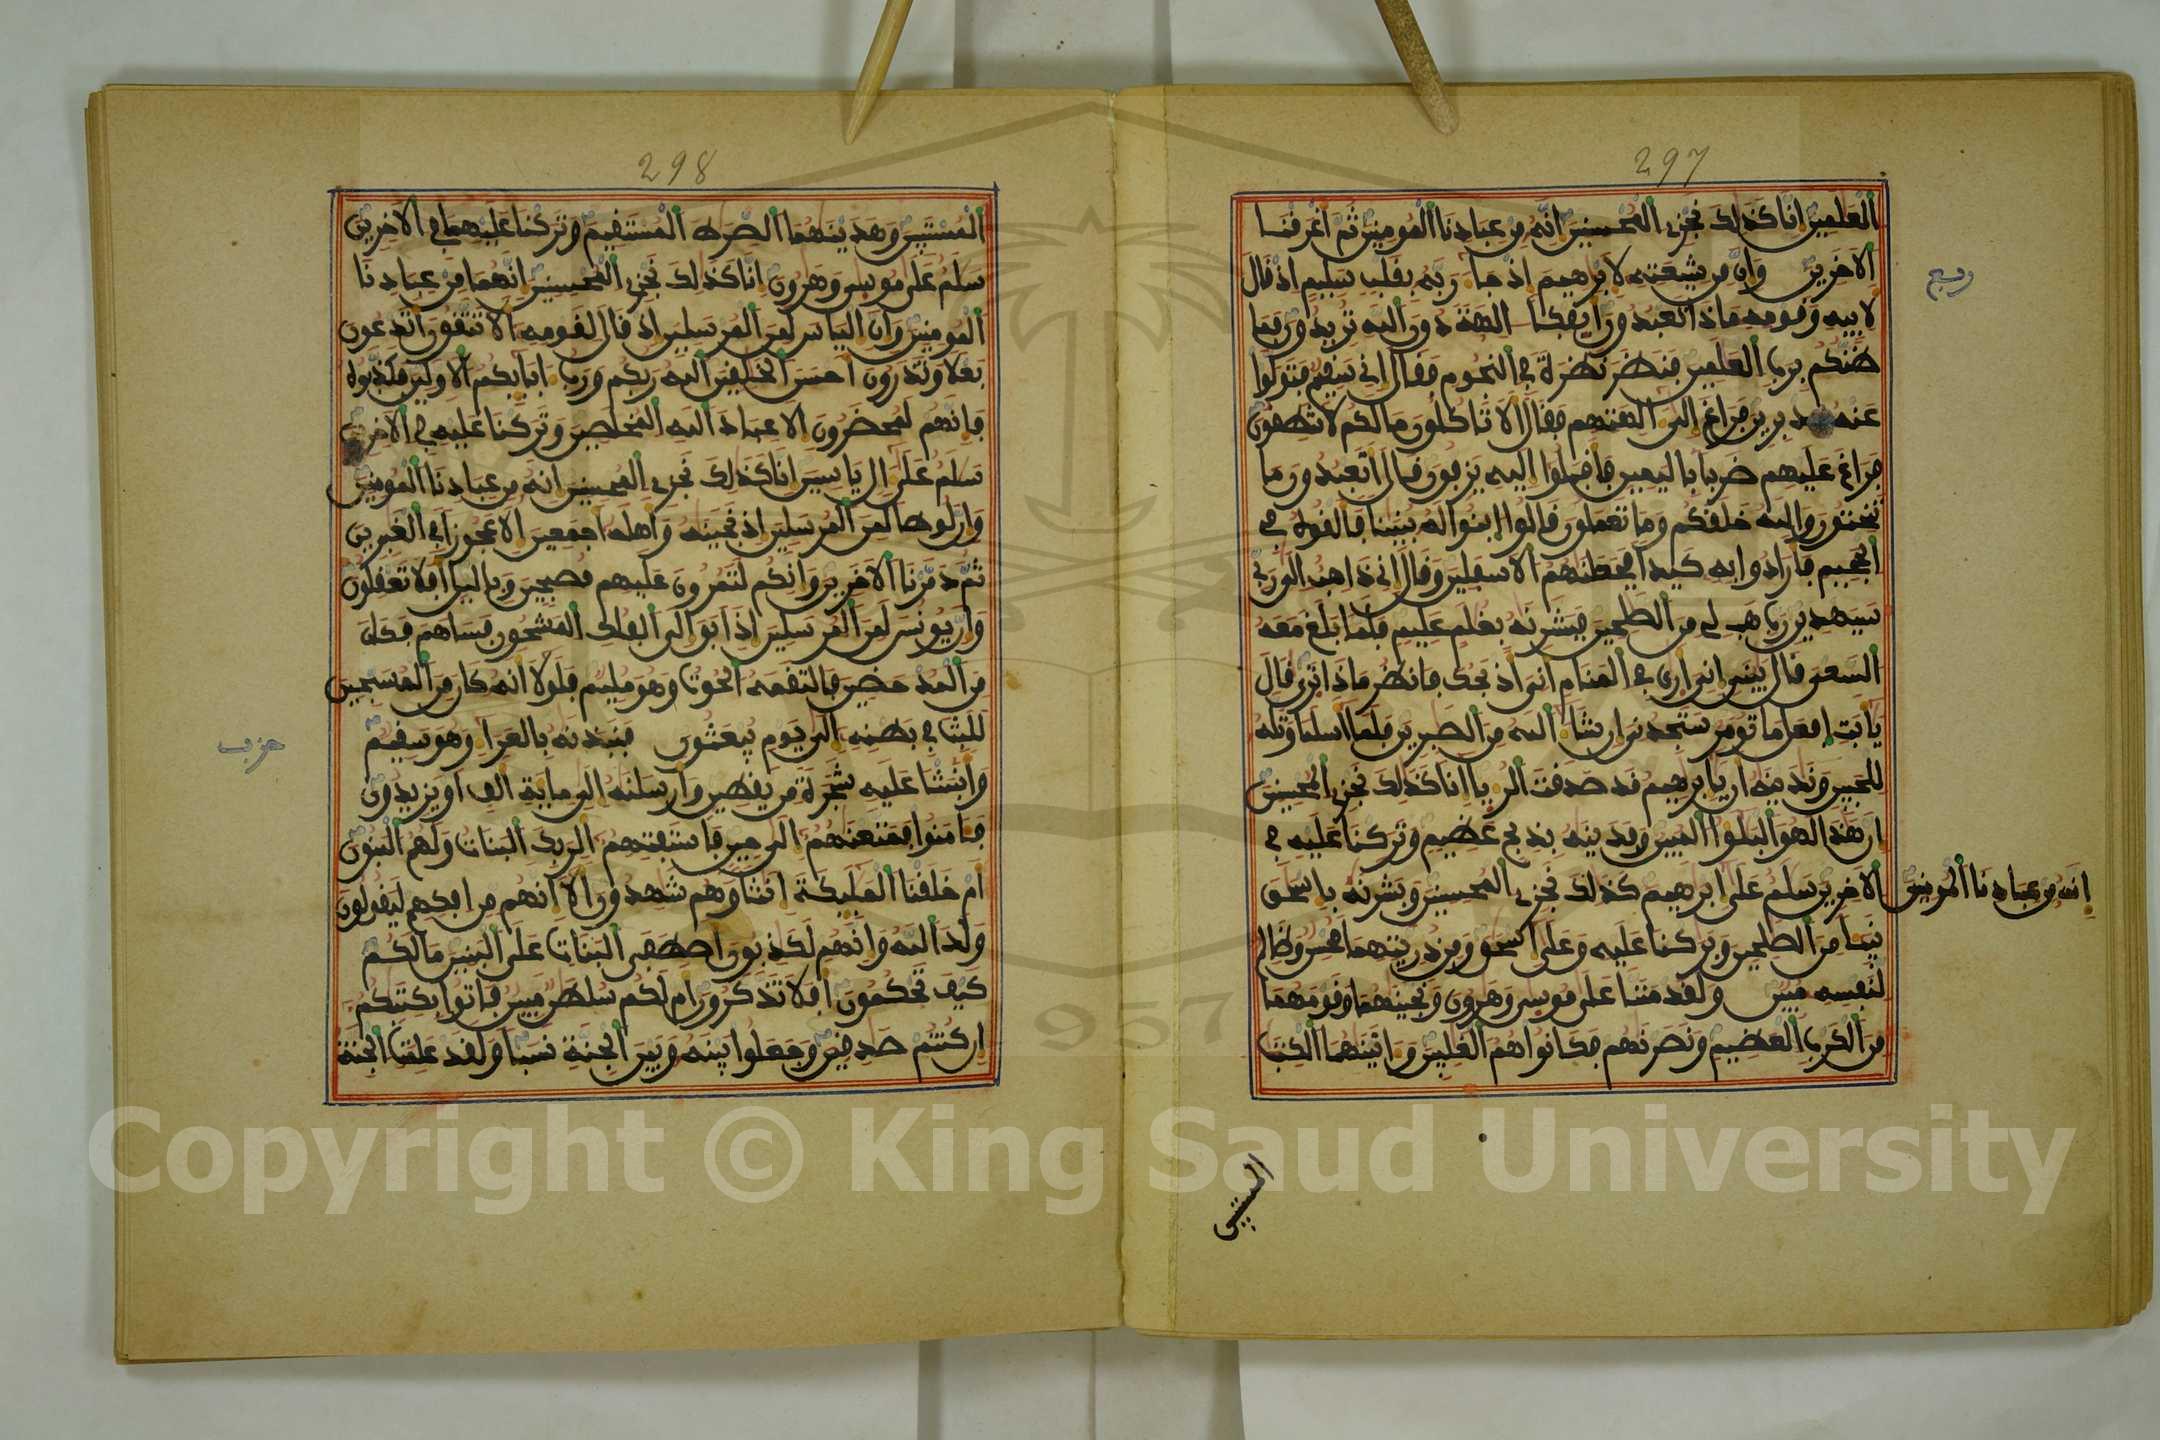 297
العلمين انا كذلك نجزي المحسنين انه من عبادنا المومنين ثم اغرقنا
الاخرين وان من شيعته لابرهيم اذ جا ربه بقلب سليم اذ قال
لابيه وقومه ماذا تعبدون ايفكا الهة دون الله تريدون فما
ظنكم برب العلمين فنظر نظرة في النجوم فقال اني سقيم فتولوا
عنه مدبرين فراغ الى الهتهم فقال الا تاكلون مالكم لا تنطقون
فراغ عليهم ضربا باليمين فاقبلوا اليه يزفون قال اتعبدون ما
تنحتون والله خلقكم وما تعملون قالوا ابنوا له بنينا فالقوه في
الجحيم فارادوا به كيدا فجعلنهم الاسفلين وقال اني ذاهب الى ربي
سيهدين رب هب لي من الصلحين فبشرنه بغلم عليم فلما بلغ معه
السعي قال يبني اني ارى في المنام اني اذبحك فانظر ماذا ترى قال
يا بت افعل ما تومر ستجدني ان شا الله من الصبرين فلما اسلما وتله
للجبين وندينه ان يا برهيم قد صدقت الريا انا كذلك نجزي المحسنين
ان هذا لهو البلوا المبين وفدينه بذبح عظيم وتركنا عليه في
الاخرين سلم على ابرهيم كذلك نجزي المحسنين وبشرنه باسحق
انه من عبادنا المومنين
نبيا من الصلحين وبركنا عليه وعلى اسحق ومن ذريتهما محسن وظالم
لنفسه مبين ولقد مننا على موسى وهرون ونجينهما وقومهما
من الكرب العظيم ونصرنهم فكانوا هم الغلبين واتينهما الكتب
المستبين
298
المستبين وهدينهما الصرط المستقيم وتركنا عليهما في الاخرين
سلم على موسى وهرون انا كذلك نجزي المحسنين انهما من عبادنا
المومنين وان الياس لمن المرسلين اذ قال لقومه الا تتقون اتدعون
بعلا وتذرون احسن الخلقين الله ربكم ورب ابايكم الاولين فكذبوه
فانهم لمحضرون الا عباد الله المخلصين وتركنا عليه في الاخرين
سلم على ال ياسين انا كذلك نجزي المحسنين انه من عبادنا المومنين
وان لوطا لمن المرسلين اذ نجينه واهله اجمعين الا عجوزا في الغبرين
ثم دمرنا الاخرين وانكم لتمرون عليهم مصبحين وباليل افلا تعقلون
وان يونس لمن المرسلين اذ ابق الى الفلك المشحون فساهم فكان
من المدحضين فالتقمه الحوت وهو مليم فلولا انه كان من المسبحين
للبث في بطنه الى يوم يبعثون فنبذنه بالعرا وهو سقيم
حزب
وانبتنا عليه شجرة من يقطين وارسلنه الى ماية الف او يزيدون
فامنوا فمتعنهم الى حين فاستفتهم الربك البنات ولهم البنون
ام خلقنا المليكة انثا وهم شهدون الا انهم من افكهم ليقولون
ولد الله وانهم لكذبون اصطفى البنات على البنين مالكم
كيف تحكمون افلا تذكرون ام لكم سلطن مبين فاتوا بكتبكم
ان كنتم صدقين وجعلوا بينه وبين الجنة نسبا ولقد علمت الجنة
Copyright © King Saud University
957